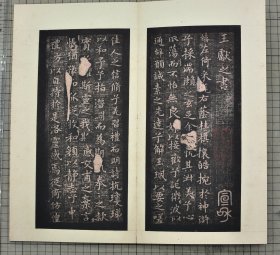 王獻之書
嬉左倚采旄右蔭桂旗攘皓腕於神滸
兮采湍瀨之玄芝余情悅其淑美兮心
振蕩而不怡無良媒以接歡兮託微波以
通辭願誠素之先達兮解玉珮以要之嗟
佳人之信脩兮羌習禮而明詩抗瓊珶
以和予兮指潛淵而爲期執拳拳之款
實兮懼斯靈之我欺感交甫之棄言
悵猶豫而狐疑收和顏以靜志兮申
禮防以自持於是洛靈感焉徙倚仿偟